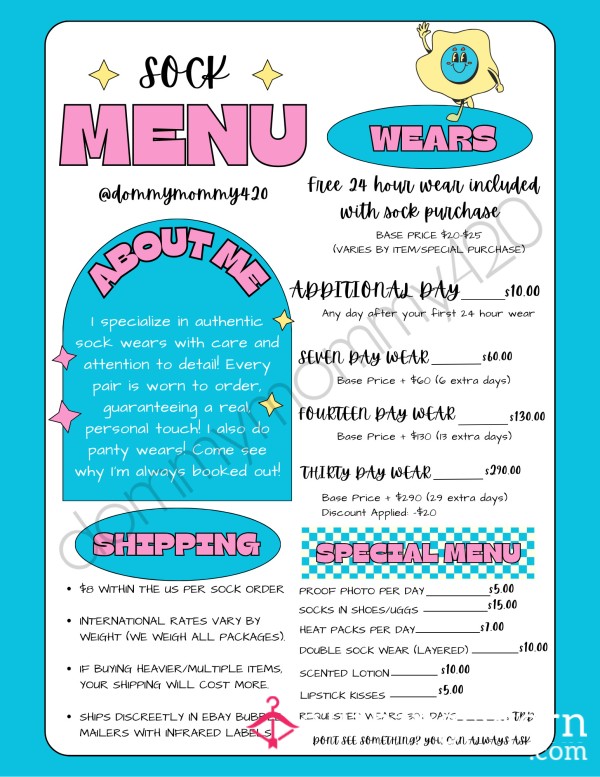 SOCK
MENU
@dommymommy420
ABOUT ME
I specialize in authentic
sock wears with care and
attention to detail! Every
pair is worn to order,
guaranteeing a real,
personal touch! I also do
panty wears! Come see
why I'm always booked out!
SHIPPING
• $8 WITHIN THE US PER SOCK ORDER
• INTERNATIONAL RATES VARY BY
WEIGHT (WE WEIGH ALL PACKAGES).
• IF BUYING HEAVIER/MULTIPLE ITEMS,
YOUR SHIPPING WILL COST MORE.
• SHIPS DISCREETLY IN EBAY BUBBLE
MAILERS WITH INFRARED LABELS
WEARS
Free 24 hour wear included
with sock purchase
BASE PRICE $20-$25
(VARIES BY ITEM/SPECIAL PURCHASE)
ADDITIONAL DAY______$10.00
Any day after your first 24 hour wear
SEVEN DAY WEAR______$60.00
Base Price + $60 (6 extra days)
FOURTEEN DAY WEAR______$130.00
Base Price + $130 (13 extra days)
THIRTY DAY WEAR______$290.00
Base Price + $290 (29 extra days)
Discount Applied: -$20
SPECIAL MENU
PROOF PHOTO PER DAY______$5.00
SOCKS IN SHOES/UGGS______$15.00
HEAT PACKS PER DAY______$7.00
DOUBLE SOCK WEAR (LAYERED)______$10.00
SCENTED LOTION______$10.00
LIPSTICK KISSES______$5.00
REQUESTED WEARS 30+ DAYS______TBD
DONT SEE SOMETHING? YOU CAN ALWAYS ASK
dommymommy420
.com